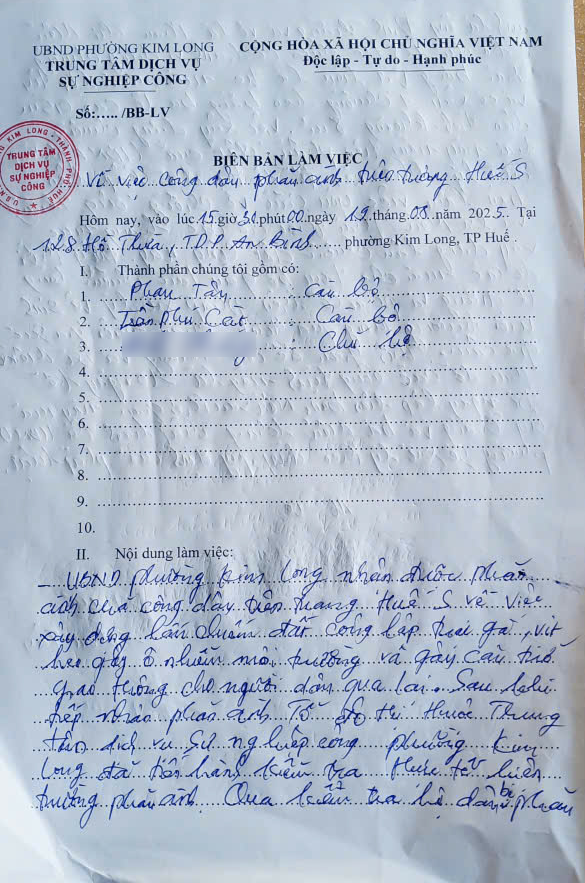 UBND PHƯỜNG KIM LONG
TRUNG TÂM DỊCH VỤ
SỰ NGHIỆP CÔNG
CỘNG HÒA XÃ HỘI CHỦ NGHĨA VIỆT NAM
Độc lập - Tự do - Hạnh phúc
Số:..... /BB-LV
KIM LONG - THÀNH PHỐ HUẾ
TRUNG TÂM
DỊCH VỤ
SỰ NGHIỆP
CÔNG
BIÊN BẢN LÀM VIỆC
Về việc công dân phản ánh trên tường Huế S
Hôm nay, vào lúc 15 giờ 30 phút 00 ngày 12 tháng 08 năm 2025. Tại
128 Hồ Thừa, TDP An Bình phường Kim Long, TP Huế.
I. Thành phần chúng tôi gồm có:
1. Phan Tấn : Cán bộ
2. Trần Phú Cát : Cán bộ
3. : Chủ hộ
4.
5.
6.
7.
8.
9.
10.
II. Nội dung làm việc:
- UBND phường Kim Long nhận được phản
ánh của công dân trên trang Huế S về việc
xây dựng lấn chiếm đất công lập trại gà, vịt
heo gây ô nhiễm môi trường và gây cản trở
giao thông cho người dân qua lại. Sau khi
tiếp nhận phản ánh Tổ đô thị thuộc Trung
tâm dịch vụ sự nghiệp công phường Kim
Long đã tiến hành kiểm tra thực tế hiện
trường phản ánh. Qua kiểm tra hộ dân bị phản